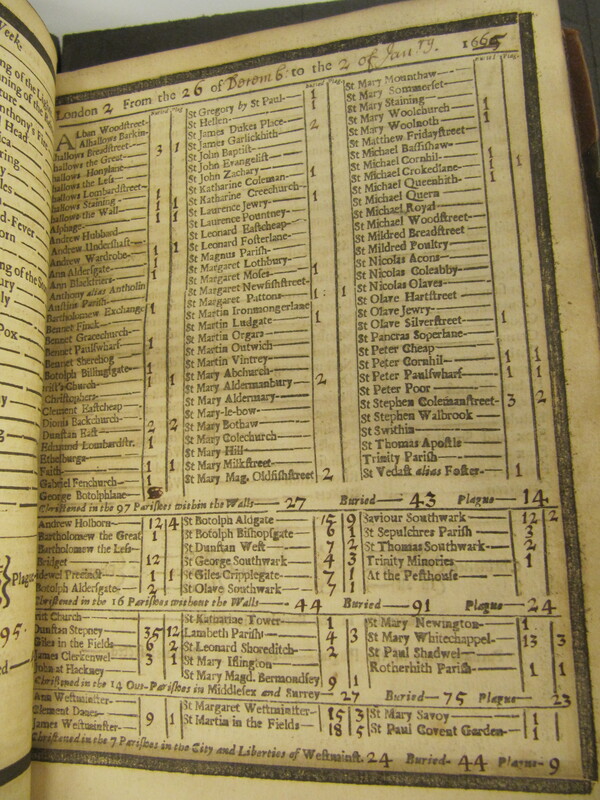 London 2 From the 26 of Decemb: to the 2 of Jan'ry. 1665
Buried Plag.
Alban Woodstreet
Alhallows Barkin
hallows Breadstreet 3 1
hallows the Great
hallows Honylane
hallows the Less
hallows Lombardstreet
hallows Staining 1
hallows the Wall 1 1
Alphage 1 1
Andrew Hubbard
Andrew Undershaft
Andrew Wardrobe 1 1
Ann Aldersgate
Ann Blackfriers 1
Anthony alias Antholin
Austins Parish
Bartholomew Exchange 1
Bennet Finck
Bennet Gracechurch
Bennet Paulswharf 1
Bennet Sherehog
Botolph Billingsgate
rist's Church 1 1
Christophers
Clement Eastcheap
Dionis Backchurch
Dunstan East 2 2
Edmund Lombardstr. 1
Ethelburga
Faith 1 1
Gabriel Fenchurch
George Botolphlane
Buried Plag.
St Gregory by St Paul 1
St Hellen 1
St James Dukes Place
St James Garlickhith 2
St John Baptist
St John Evangelist
St John Zachary
St Katharine Coleman 1
St Katharine Creechurch
St Laurence Jewry 1
St Laurence Pountney
St Leonard Eastcheap
St Leonard Fosterlane
St Magnus Parish
St Margaret Lothbury
St Margaret Moses 1
St Margaret Newfishstreet
St Margaret Pattons 1 1
St Martin Ironmongerlane
St Martin Ludgate 1
St Martin Orgars
St Martin Outwich
St Martin Vintrey
St Mary Abchurch
St Mary Aldermanbury 2
St Mary Aldermary
St Mary-le-bow
St Mary Bothaw
St Mary Colechurch
St Mary Hill
St Mary Milkstreet
St Mary Mag. Oldfishstreet 2
Buried Plag.
St Mary Mounthaw
St Mary Sommerset
St Mary Staining
St Mary Woolchurch 1
St Mary Woolnoth 1
St Matthew Fridaystreet
St Michael Bassishaw
St Michael Cornhil 1 1
St Michael Crokedlane 1
St Michael Queenhith
St Michael Quern
St Michael Royal
St Michael Woodstreet
St Mildred Breadstreet
St Mildred Poultry
St Nicolas Acons
St Nicolas Coleabby
St Nicolas Olaves
St Olave Hartstreet
St Olave Jewry
St Olave Silverstreet 1
St Pancras Soperlane
St Peter Cheap
St Peter Cornhil 1 1
St Peter Paulswharf 1 1
St Peter Poor
St Stephen Colemanstreet 3 2
St Stephen Walbrook
St Swithin
St Thomas Apostle
Trinity Parish
St Vedast alias Foster 1
Christened in the 97 Parishes within the Walls 27 Buried 43 Plague 14
Andrew Holborn 12 4
Bartholomew the Great 1
Bartholomew the Less
Bridget 12
idewel Precinct 1 1
Botolph Aldersgate 2
St Botolph Aldgate 15 9
St Botolph Bishopsgate 6 1
St Dunstan West 7 2
St George Southwark 4 3
St Giles Cripplegate 7 1
St Olave Southwark 7 1
Saviour Southwark 12 2
St Sepulchres Parish 3
St Thomas Southwark 2
Trinity Minories 1
At the Pesthouse
Christened in the 16 Parishes without the Walls 44 Buried 91 Plague 24
rist Church
Dunstan Stepney 35 12
Giles in the Fields 6 2
James Clerkenwel 3 1
John at Hackney
St Katharine Tower 1
Lambeth Parish 4 3
St Leonard Shoreditch 2
St Mary Islington
St Mary Magd. Bermondsey 9 1
St Mary Newington 1
St Mary Whitechappel 13 3
St Paul Shadwel
Rotherhith Parish 1 1
Christened in the 14 Out-Parishes in Middlesex and Surrey 27 Buried 75 Plague 23
Ann Westminster
Clement Danes 9 1
James Westminster
St Margaret Westminster 15 3
St Martin in the Fields 18 5
St Mary Savoy 1
St Paul Covent Garden 1 1
Christened in the 7 Parishes in the City and Liberties of Westminst. 24 Buried 44 Plague 9